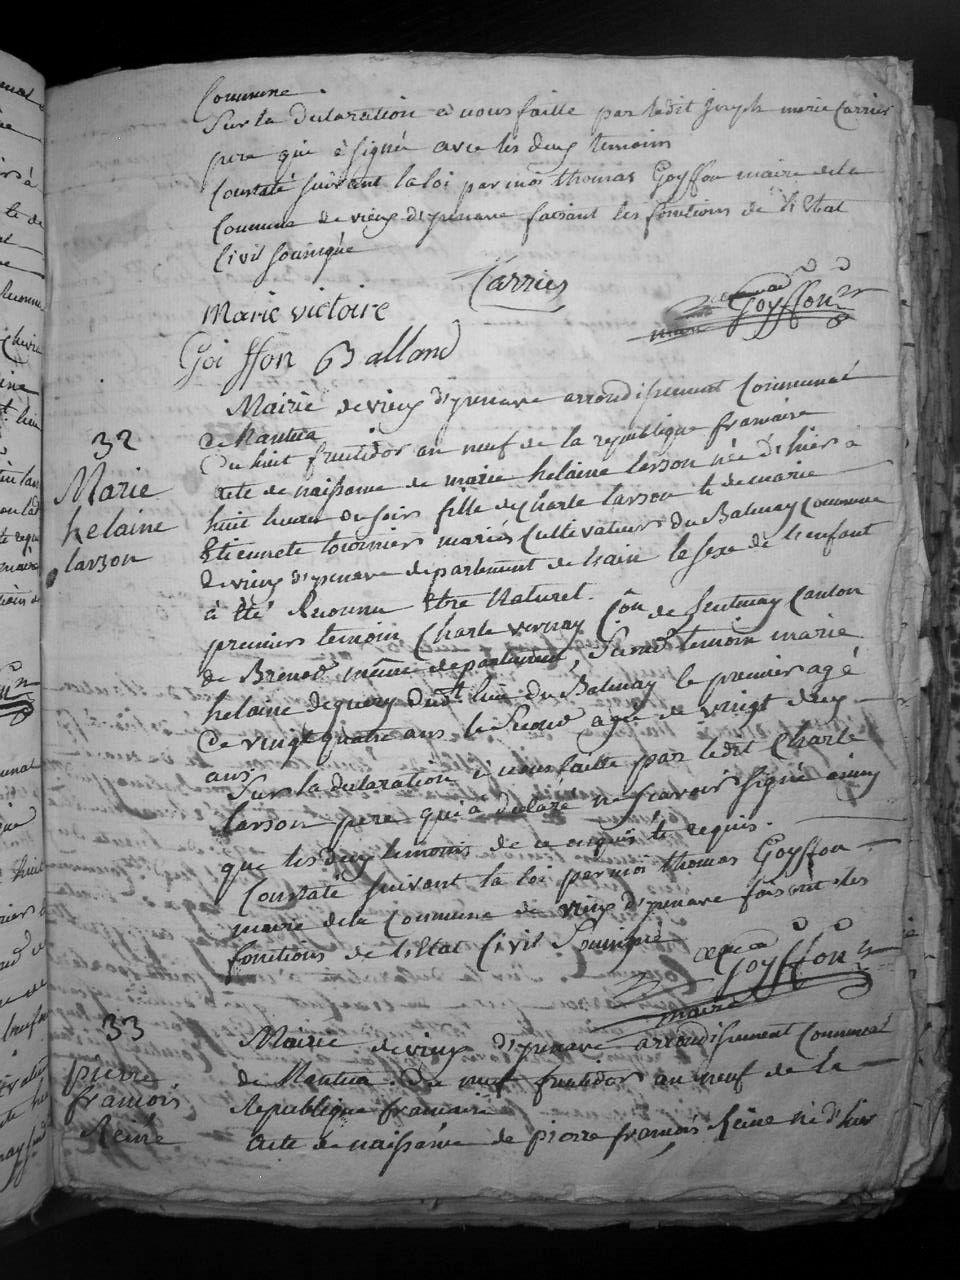 Commune.
Sur la declaration à nous faitte par ledit joseph marie Carrier
pere qui à signé avec les deux temoins
Constaté suivant la loi par moi thomas Goyffon maire de la
Commune de vieux d'yzenave faisant les fonctions de l'Etat
Civil soussigné
Carrier
Marie victoire
Goyffon
maire
Goi ffon Balland
Mairie de vieux d'yzenave arrondissement Communal
de Nantua
32
Marie
helaine
larson
Du huit fructidor an neuf de la republique francaise
acte de naissance de marie helaine larson née d'hier à
huit heures du soir fille de Charle larson et de marie
Etiennete tournier mariés Cultivateurs du Balmay Commune
de vieux d'yzenave departement de l'ain le sexe de l'enfant
à été Reconnu Etre Naturel.
premier temoin Charle vernay Con de Lentenay Canton
de Brenod même departement, Second temoin marie
helaine deguery dudt lieu du Balmay le premier agé
de vingt quatre ans le Second agée de vingt deux
ans
Sur la declaration à nous faitte par ledit Charle
larson pere qui à declaré ne scavoir signé ainsy
que les deux temoins de ce enquis et requis.
Constaté suivant la loi par moi thomas Goyffon
maire de la Commune de vieux d'yzenave faisant les
fonctions de l'Etat Civil Soussigné
Goyffon
maire
33
pierre
francois
Reine
Mairie de vieux d'yzenave arrondissement Communal
de Nantua. Du neuf fructidor an neuf de la
Republique francaise
Acte de naissance de pierre francois Reine né d'hier